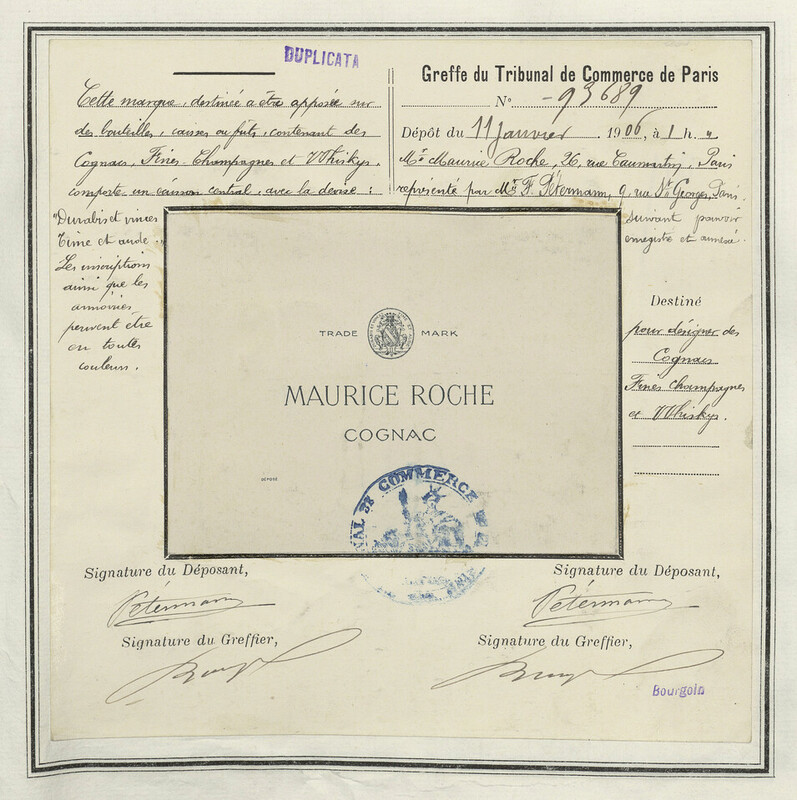 DUPLICATA
Cette marque, destinée à être apposée sur
des bouteilles, caisses ou fûts, contenant des
Cognacs, Fines-Champagnes et Whiskys,
comporte un écusson central, avec la devise :
"Durabis et vinces
Time et aude".
Les inscriptions
ainsi que les
armoiries
peuvent être
en toutes
couleurs.
Greffe du Tribunal de Commerce de Paris
N° 93689
Dépôt du 11 janvier 1906, à 1 h. "
Mr Maurice Roche, 26, rue Caumartin, Paris
représenté par Mr F. Pétermann, 9, rue St Georges, Paris.
suivant pouvoir
enregistré et annexé.
Destiné
pour désigner des
Cognacs
Fines champagnes
et Whiskys.
TRADE MARK
MAURICE ROCHE
COGNAC
DÉPOSÉ
COMMERCE
Signature du Déposant,
Pétermann
Signature du Greffier,
Signature du Déposant,
Pétermann
Signature du Greffier,
Bourgoin